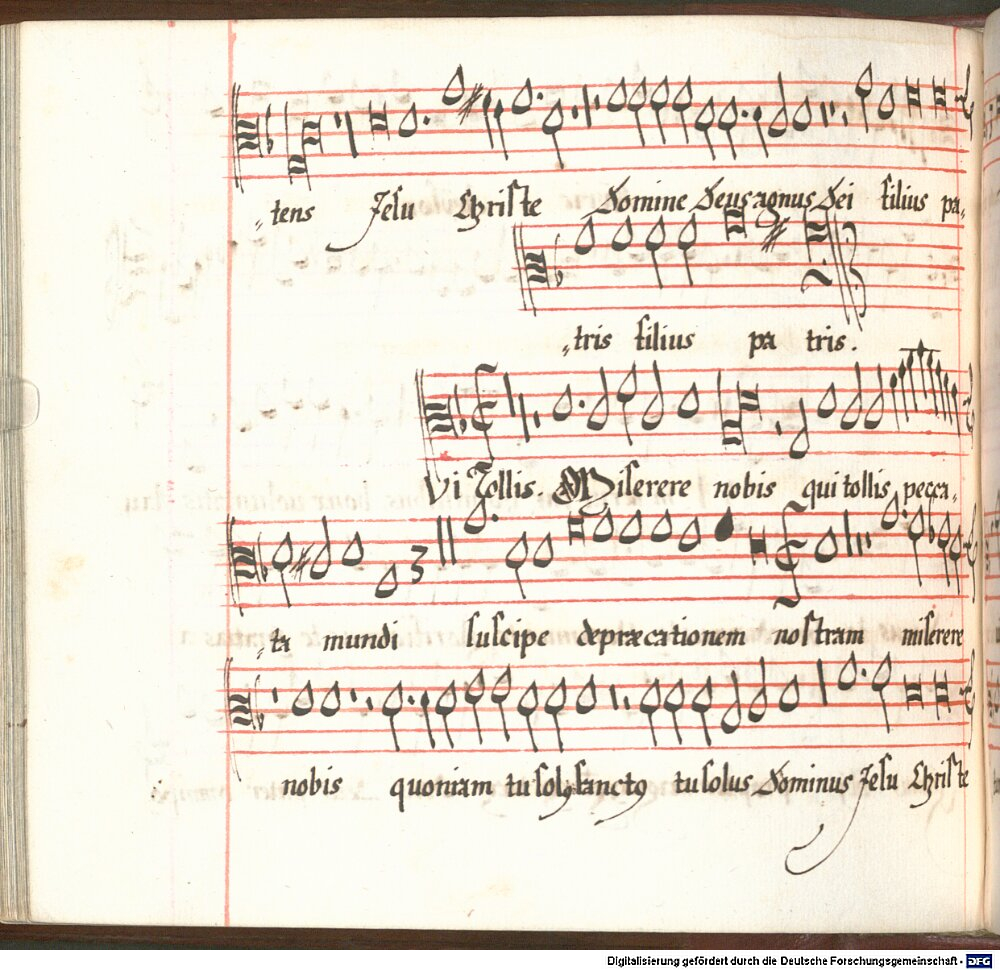 tens Jesu Christe Domine Deus agnus Dei filius pa,
tris filius pa tris.
Vi Tollis Miserere nobis qui tollis pecca,
ta mundi suscipe depræcationem nostram miserere
nobis quoniam tu solꝰ sanctꝰ tu solus Dominus Jesu Christe
Digitalisierung gefördert durch die Deutsche Forschungsgemeinschaft - DFG